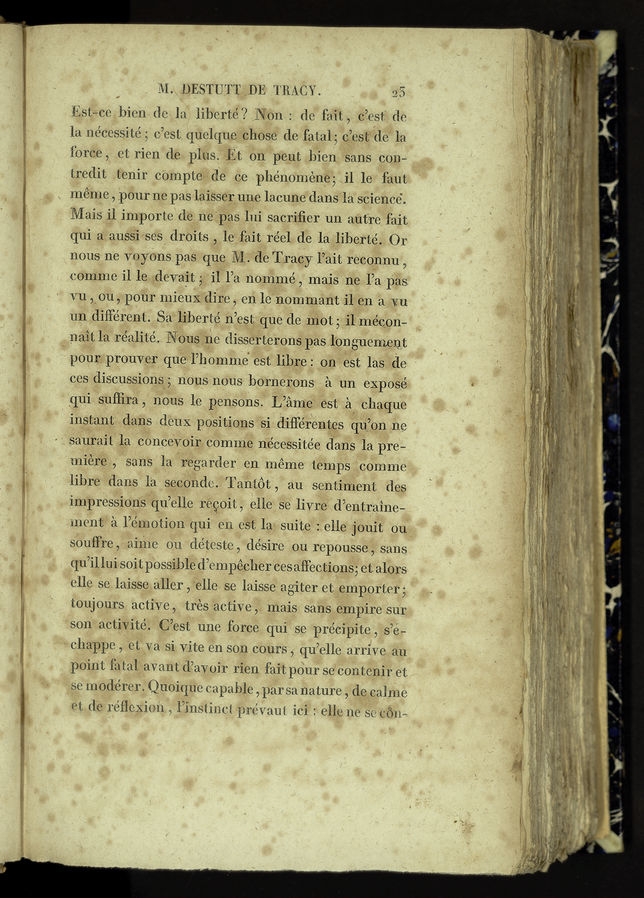 M. DESTUTT DE TRACY. 23
Est-ce bien de la liberté? Non : de fait, c'est de
la nécessité; c'est quelque chose de fatal; c'est de la
force, et rien de plus. Et on peut bien sans con-
tredit tenir compte de ce phénomène; il le faut
même, pour ne pas laisser une lacune dans la science.
Mais il importe de ne pas lui sacrifier un autre fait
qui a aussi ses droits, le fait réel de la liberté. Or
nous ne voyons pas que M. de Tracy l'ait reconnu,
comme il le devait; il l'a nommé, mais ne l'a pas
vu, ou, pour mieux dire, en le nommant il en a vu
un différent. Sa liberté n'est que de mot; il mécon-
naît la réalité. Nous ne disserterons pas longuement
pour prouver que l'homme est libre : on est las de
ces discussions; nous nous bornerons à un exposé
qui suffira, nous le pensons. L'âme est à chaque
instant dans deux positions si différentes qu'on ne
saurait la concevoir comme nécessitée dans la pre-
mière, sans la regarder en même temps comme
libre dans la seconde. Tantôt, au sentiment des
impressions qu'elle reçoit, elle se livre d'entraîne-
ment à l'émotion qui en est la suite : elle jouit ou
souffre, aime ou déteste, désire ou repousse, sans
qu'il lui soit possible d'empêcher ces affections; et alors
elle se laisse aller, elle se laisse agiter et emporter;
toujours active, très active, mais sans empire sur
son activité. C'est une force qui se précipite, s'é-
chappe, et va si vite en son cours, qu'elle arrive au
point fatal avant d'avoir rien fait pour se contenir et
se modérer. Quoique capable, par sa nature, de calme
et de réflexion, l'instinct prévaut ici : elle ne se con-